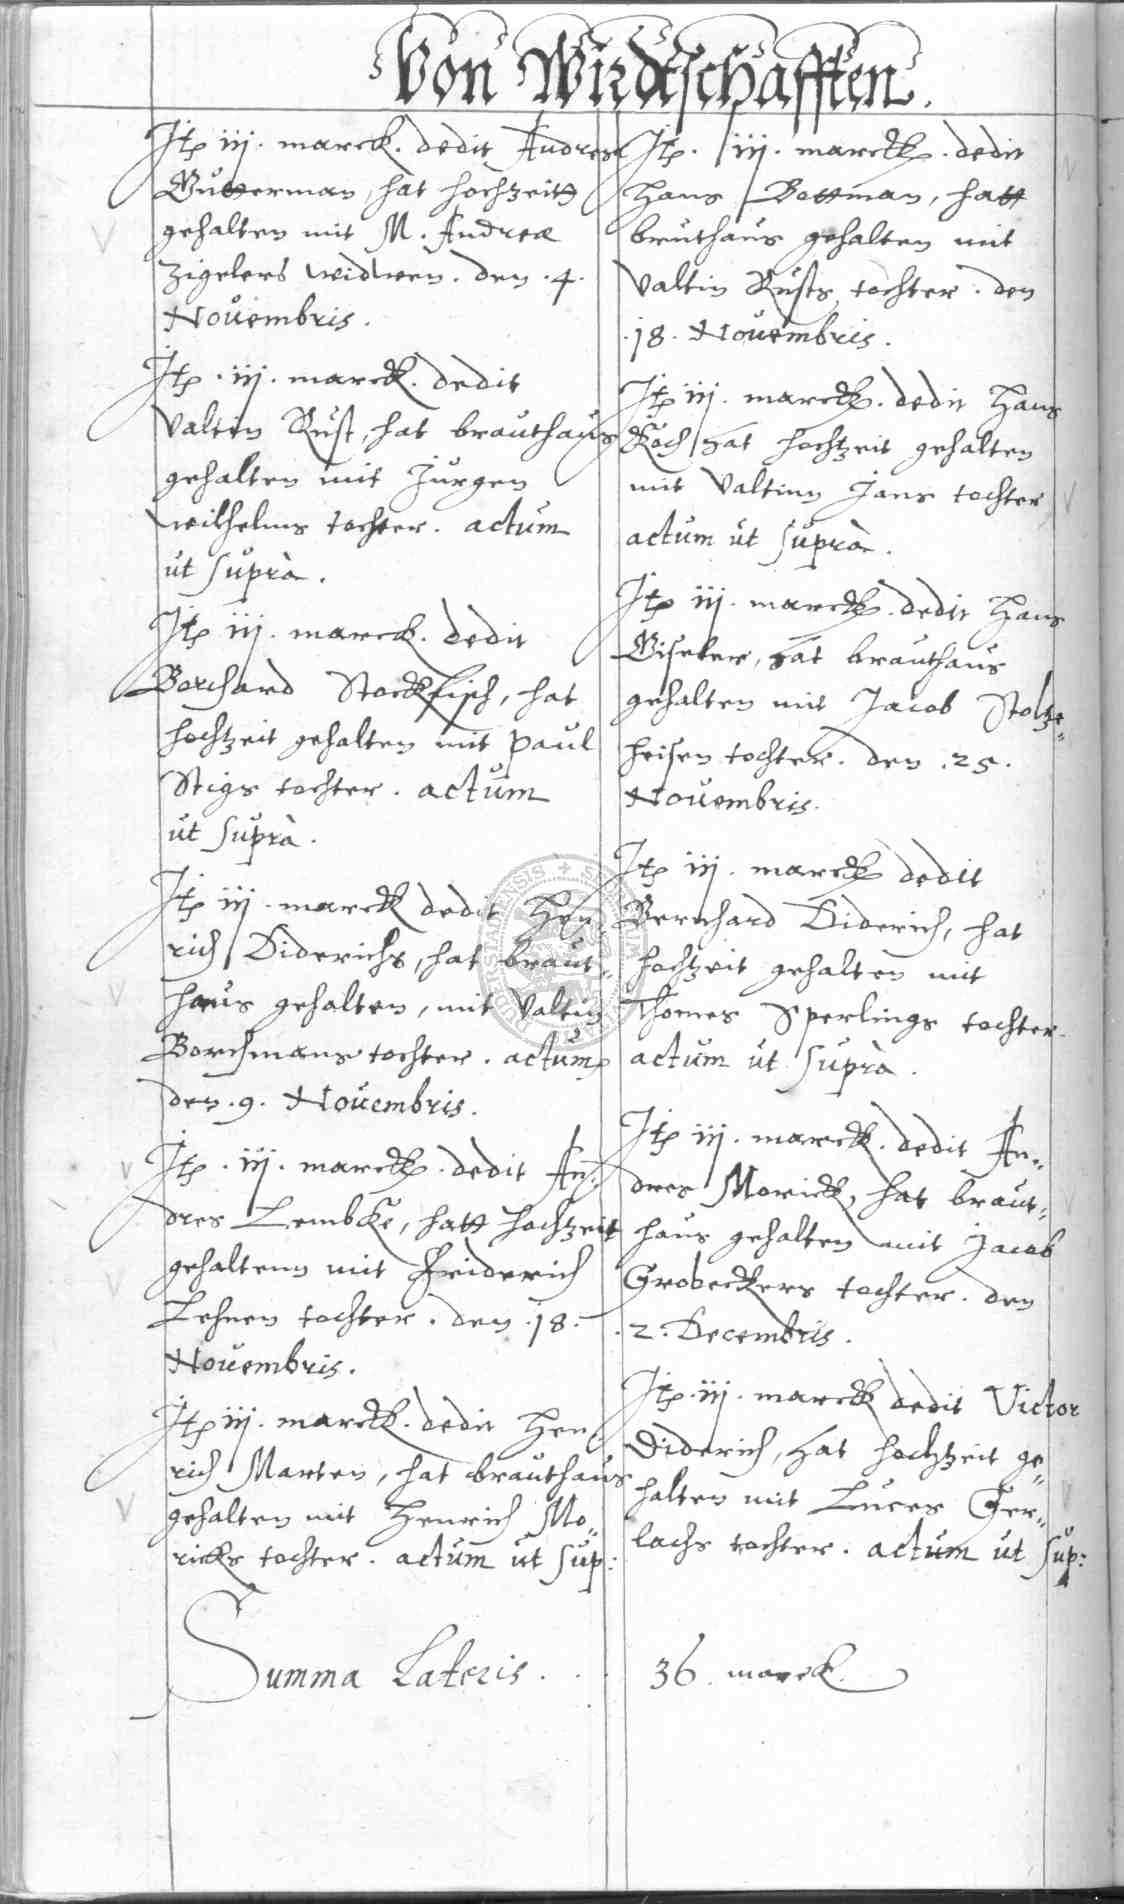 Von Wirdtschafften.
Jtp iij. marck. dedit Andres
Gutterman, hat hochzeitt
gehalten mit M. Andreæ
Zigelers widwen. den .4.
Novembris.
Jtp. iij. marck. dedit
Valtin Rust, hat brauthaus
gehalten mit Jurgen
wilhelms tochter. actum
ut suprà.
Jtp iij. marck. dedit
Borchard Stockfisch, hat
hochtzeit gehalten mit Paul
Stigs tochter. actum
ut suprà.
Jtp iij. marck dedit Hen-
rich Diderichs, hat braut-
haus gehalten, mit Valtin
Borchmans tochter. actum
den .9. Novembris.
Jtp. iij. marck. dedit An-
dres Lembcke, hatt hochtzeit
gehaltenn mit Friderich
Lehnen tochter. den .18.
Novembris.
Jtp iij. marck. dedit Hen-
rich Marten, hat brauthaus
gehalten mit Henrich Mo-
ricks tochter. actum ut sup:
Jtp. iij. marck. dedit
Hans Bottman, hatt
bruthaus gehalten mit
Valtin Rusts tochter. den
.18. Novembris.
Jtp iij. marck. dedit Hans
Koch hat hochtzeit gehalten
mit Valtinn Jans tochter
actum ut suprà.
Jtp iij. marck. dedit Hans
Giseler, hat brauthaus
gehalten mit Jacob Stoltze-
heisen tochter. den .25.
Novembris.
Jtp iij. marck dedit
Bernhard Diderich, hat
hochtzeit gehalten mit
Thomes Sperlings tochter.
actum ut suprà.
Jtp iij. marck. dedit An-
dres Morick, hat braut-
haus gehalten mit Jacob
Grobeckers tochter. den
.2. Decembris.
Jtp. iij. marck dedit Victor
Diderich, hat hochtzeit ge-
halten mit Lucas Ger-
lachs tochter. actum ut sup:
Summa Lateris . . . 36. marck.